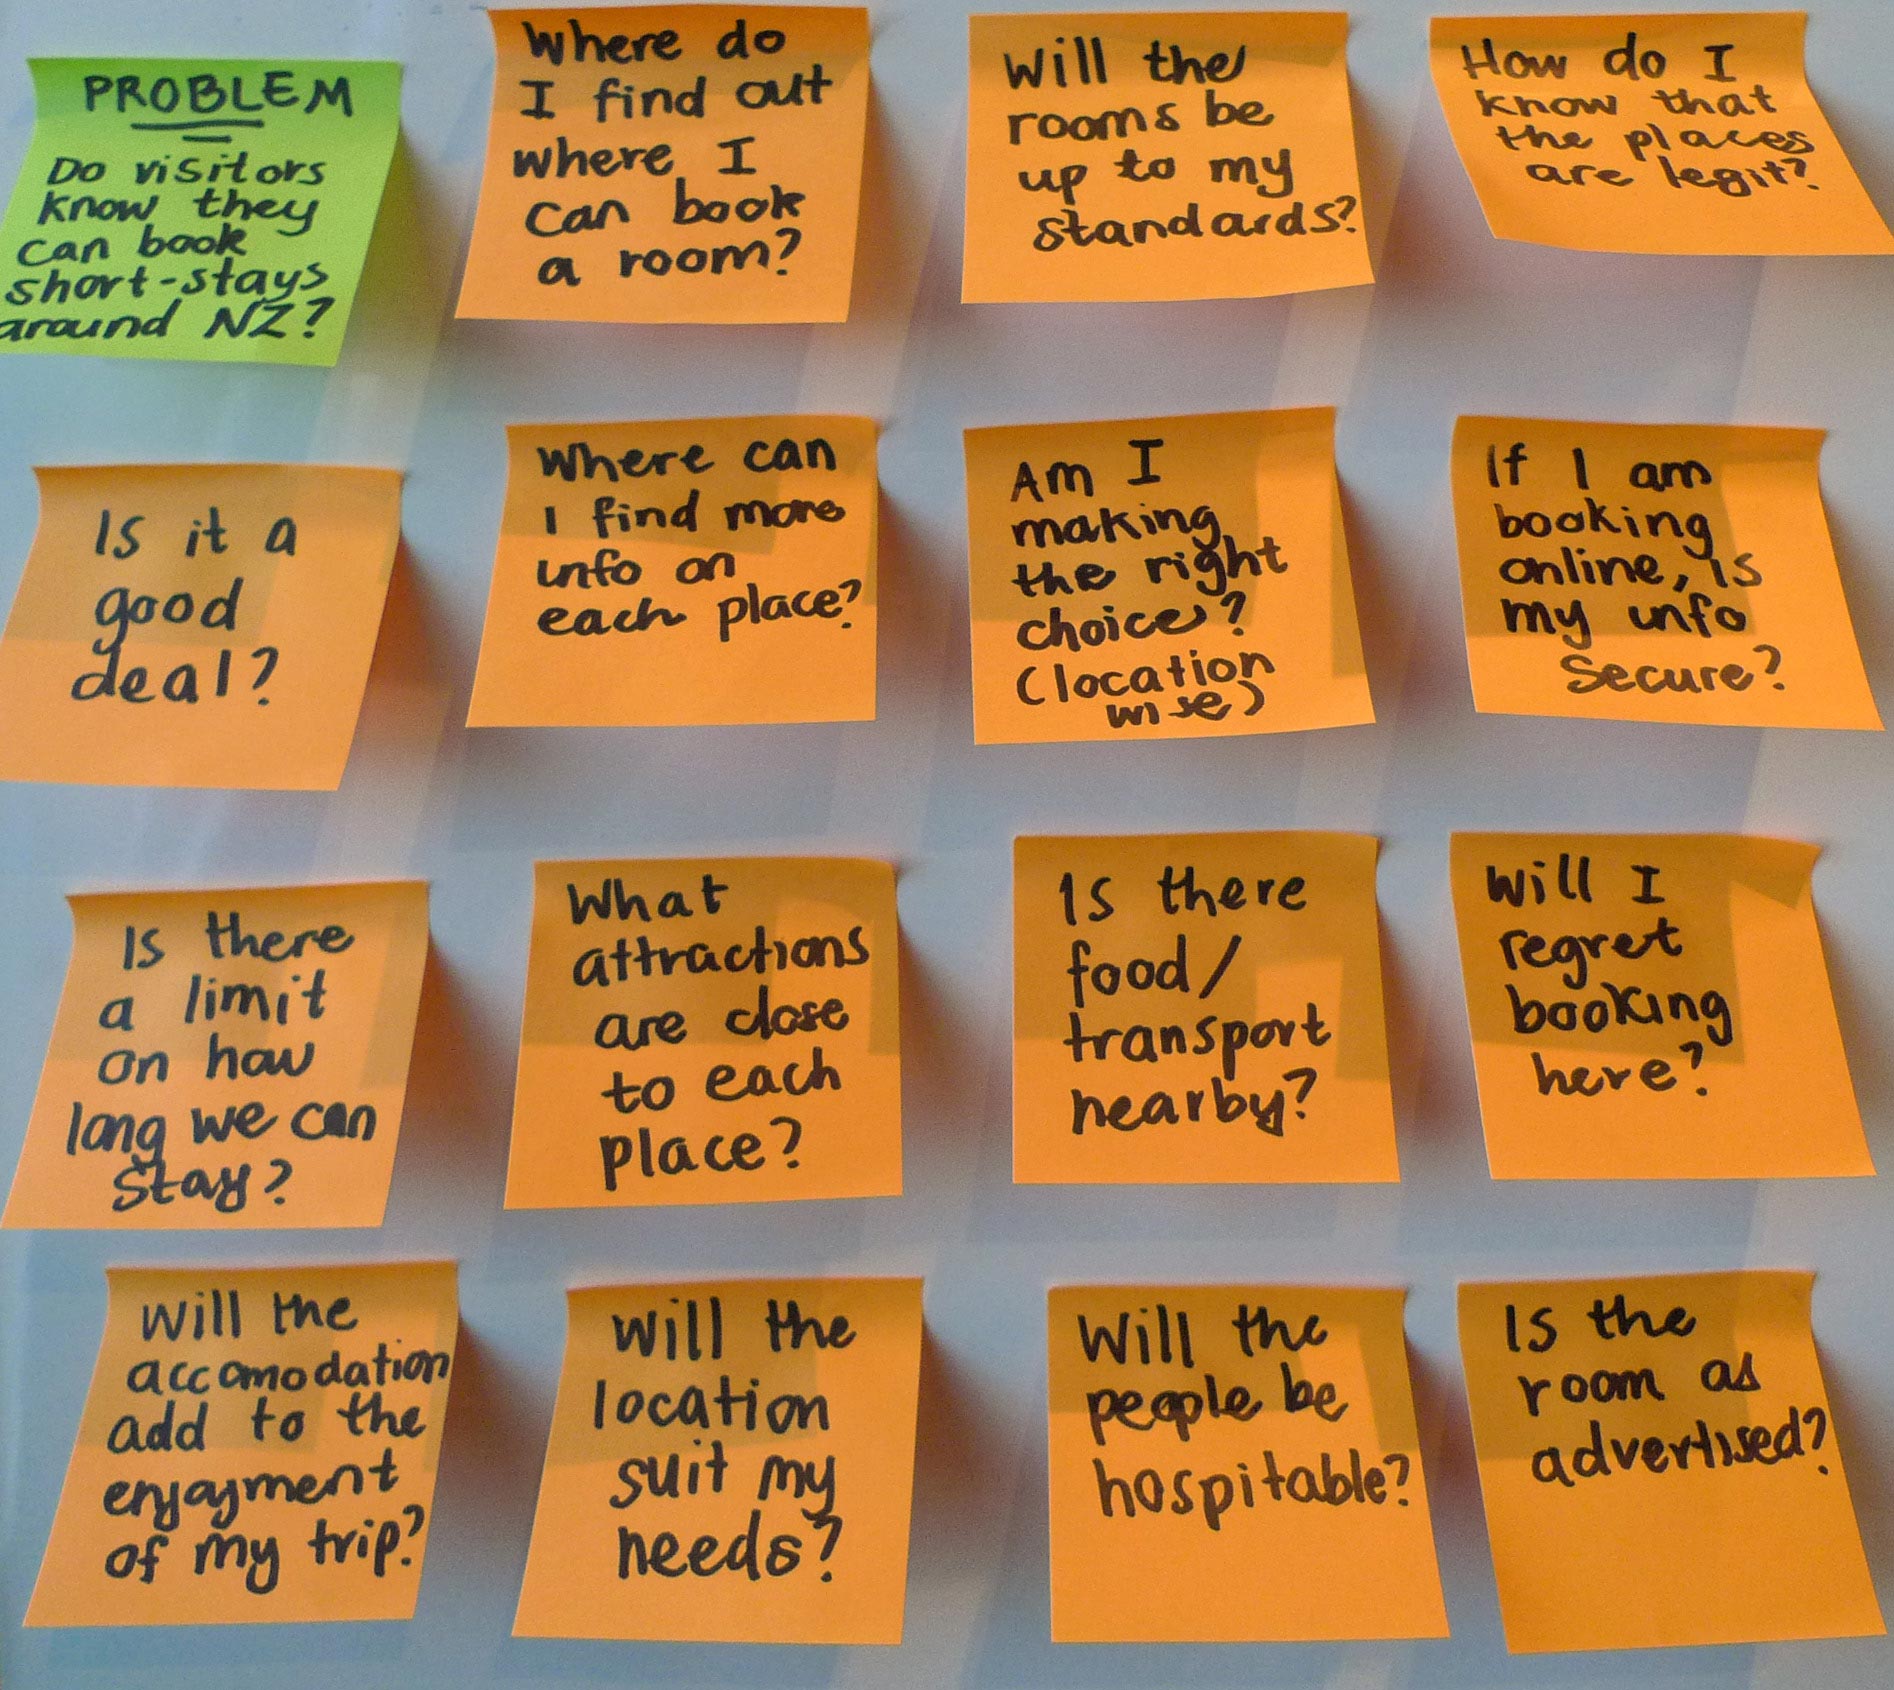 PROBLEM
Do visitors
know they
can book
short-stays
around NZ?
Where do
I find out
where I
can book
a room?
Will the
rooms be
up to my
standards?
How do I
know that
the places
are legit?
Is it a
good
deal?
Where can
I find more
info on
each place?
Am I
making
the right
choice?
(location
wise)
If I am
booking
online, is
my info
secure?
Is there
a limit
on how
long we can
stay?
What
attractions
are close
to each
place?
Is there
food/
transport
nearby?
Will I
regret
booking
here?
Will the
accomodation
add to the
enjoyment
of my trip?
Will the
location
suit my
needs?
Will the
people be
hospitable?
Is the
room as
advertised?